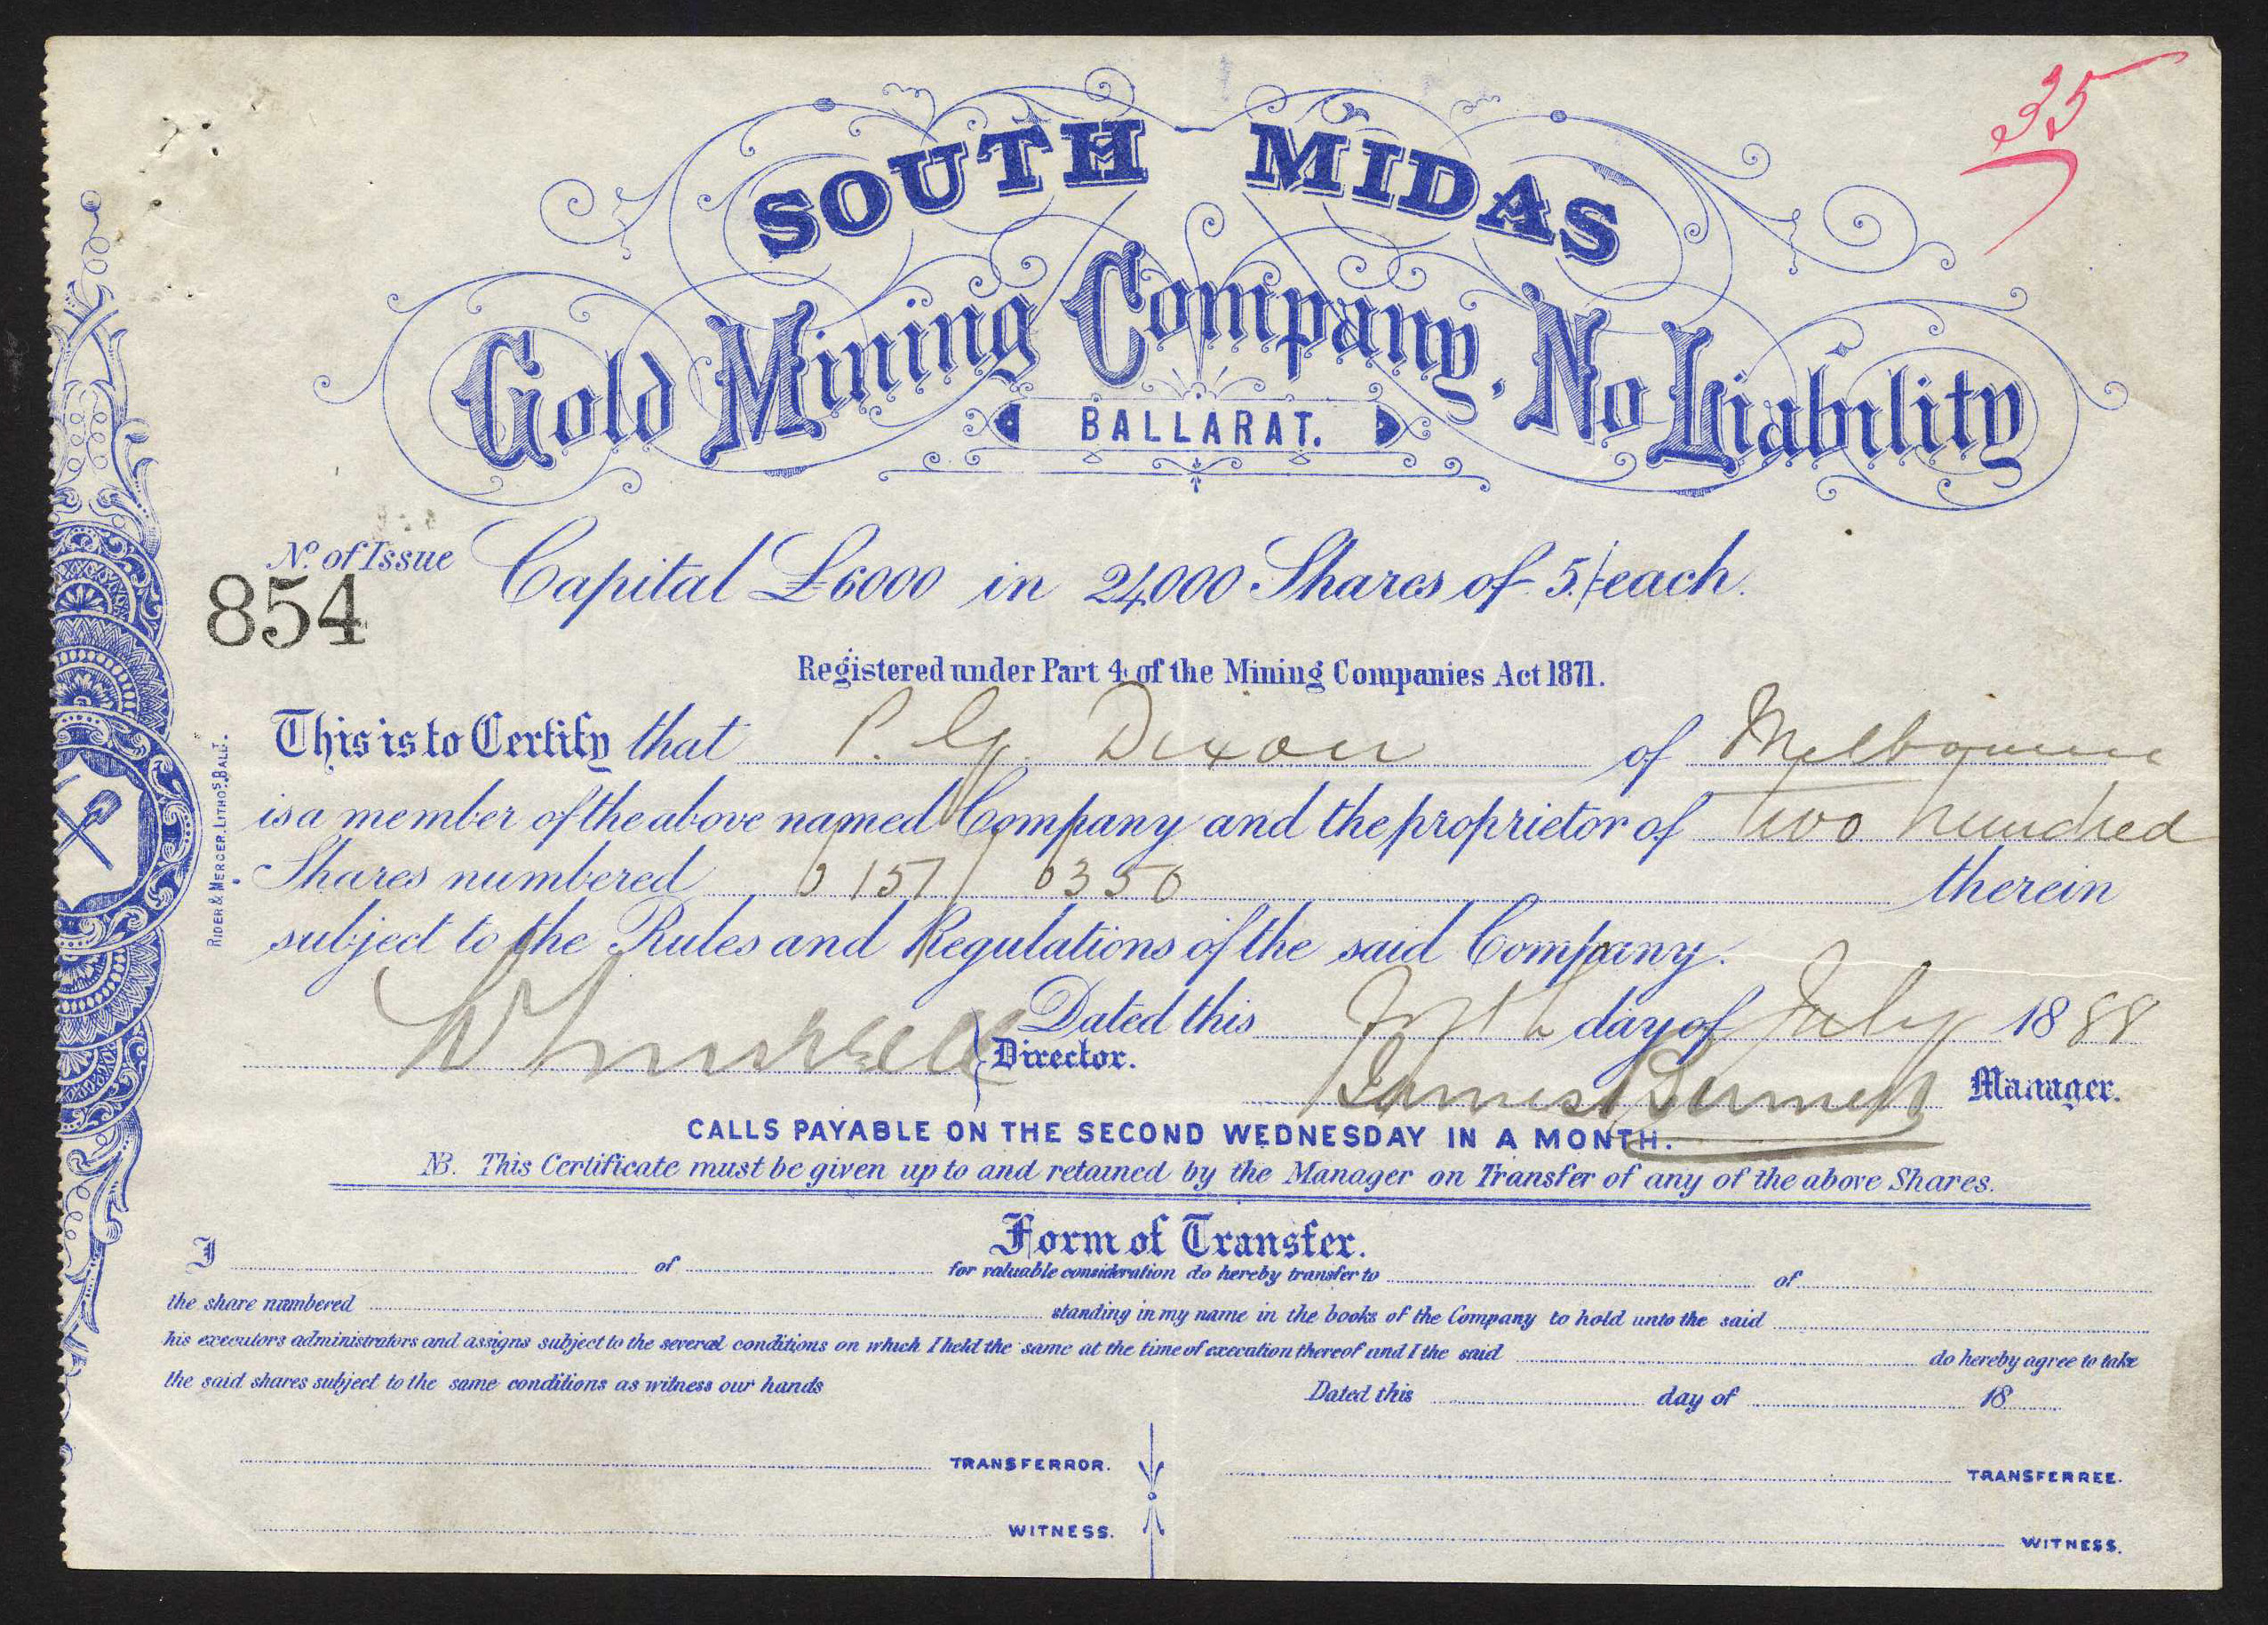 35
SOUTH MIDAS
Gold Mining Company, No Liability
BALLARAT.
No. of Issue
854
Capital £6000 in 24,000 Shares of 5/- each.
Registered under Part 4 of the Mining Companies Act 1871.
This is to Certify that P. G. Dixon of Melbourne
is a member of the above named Company and the proprietor of two hundred
Shares numbered 0151/0350 therein
subject to the Rules and Regulations of the said Company.
Dated this day of July 1888
Director.
James Manager.
CALLS PAYABLE ON THE SECOND WEDNESDAY IN A MONTH.
NB. This Certificate must be given up to and retained by the Manager on Transfer of any of the above Shares.
Form of Transfer.
I of for valuable consideration do hereby transfer to of
the share numbered standing in my name in the books of the Company to hold unto the said
his executors administrators and assigns subject to the several conditions on which I held the same at the time of execution thereof and I the said do hereby agree to take
the said shares subject to the same conditions as witness our hands Dated this day of 18
TRANSFERROR. TRANSFERREE.
WITNESS. WITNESS.
RIDER & MERCER, LITHOS, BALLT.